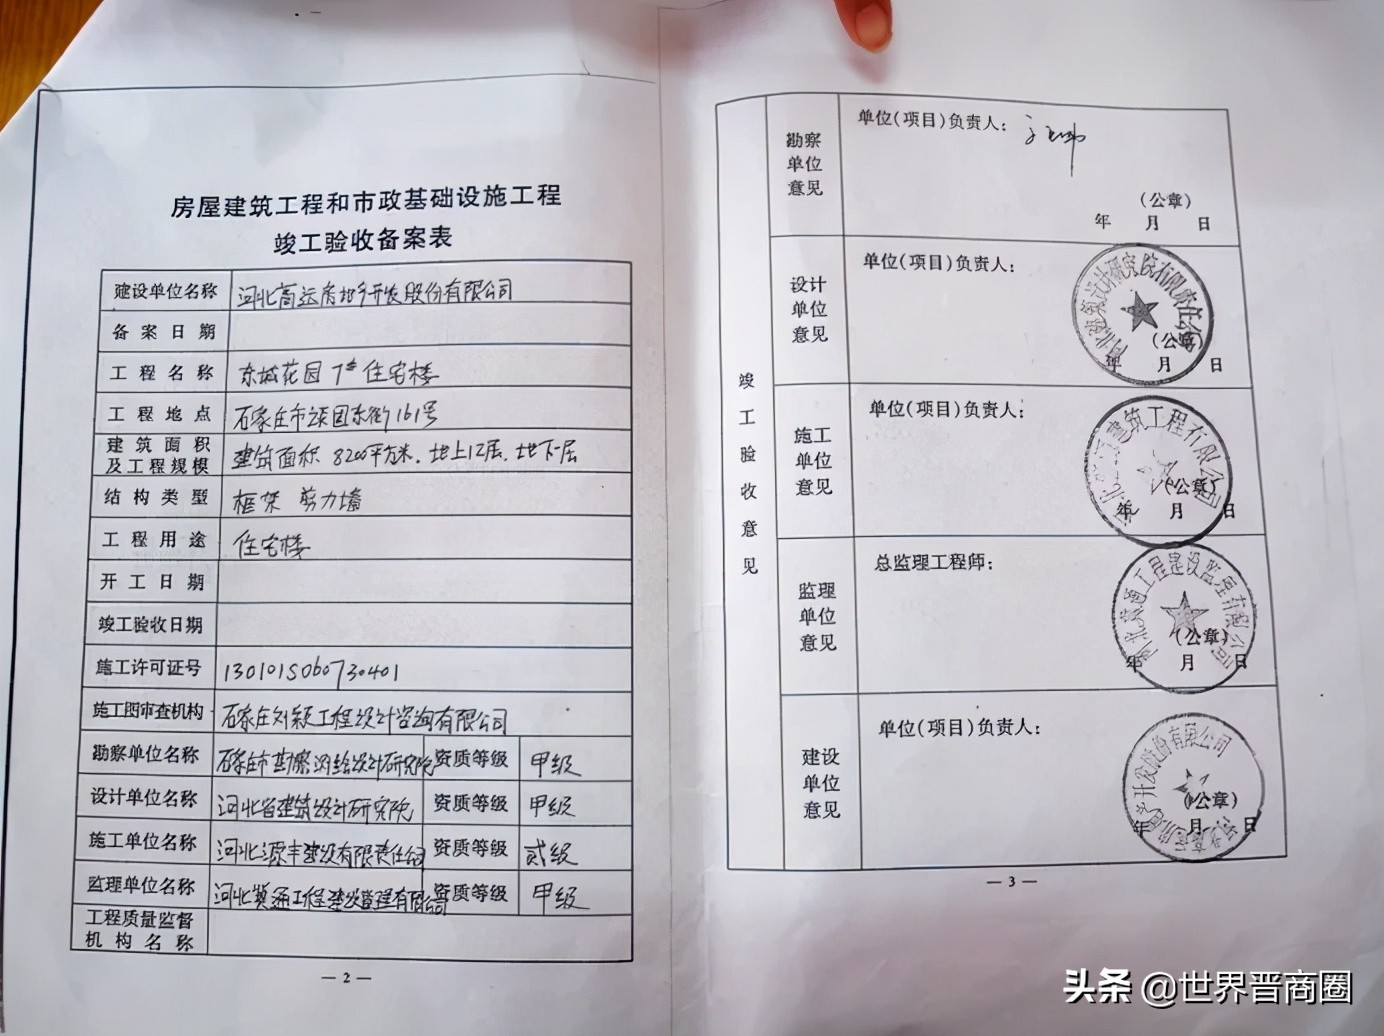 房屋建筑工程和市政基础设施工程
竣工验收备案表
建设单位名称 河北高远房地产开发股份有限公司
备案日期
工程名称 东城花园 7# 住宅楼
工程地点 石家庄市谈固东街161号
建筑面积
及工程规模 建筑面积 8200平方米.地上12层.地下一层
结构类型 框架 剪力墙
工程用途 住宅楼
开工日期
竣工验收日期
施工许可证号 130101S060730401
施工图审查机构 石家庄 工程设计咨询有限公司
勘察单位名称 石家庄市勘察测绘设计研究院 资质等级 甲级
设计单位名称 河北省建筑设计研究院 资质等级 甲级
施工单位名称 河北源丰建设有限责任公司 资质等级 贰级
监理单位名称 河北冀通工程建设监理有限公司 资质等级 甲级
工程质量监督
机构名称
— 2 —
竣工验收意见
勘察
单位
意见
单位(项目)负责人:
(公章)
年 月 日
设计
单位
意见
单位(项目)负责人:
河北建筑设计研究院有限责任公司
(公章)
年 月 日
施工
单位
意见
单位(项目)负责人:
建筑工程有限公司
(公章)
年 月 日
监理
单位
意见
总监理工程师:
河北冀通工程建设监理有限公司
(公章)
年 月 日
建设
单位
意见
单位(项目)负责人:
开发股份有限公司
(公章)
年 月 日
— 3 —
头条 @世界晋商圈